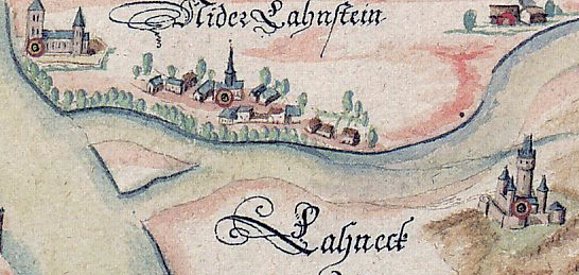 Nider Lahnstein
Lahneck